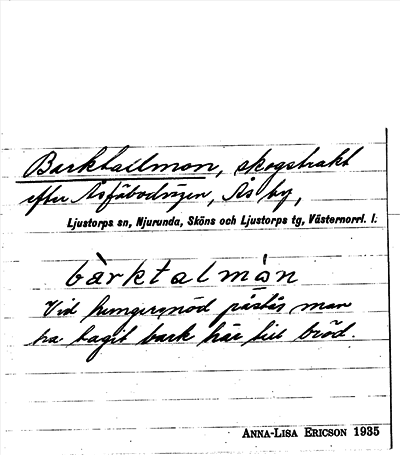 Barktallmon, skogstrakt
efter Åsfäbodvägen, Ås by,
Ljustorps sn, Njurunda, Sköns och Ljustorps tg, Västernorrl. l.
bàrktalmón
Vid hungersnöd påstås man
ha tagit bark här till bröd.
ANNA-LISA ERICSON 1935